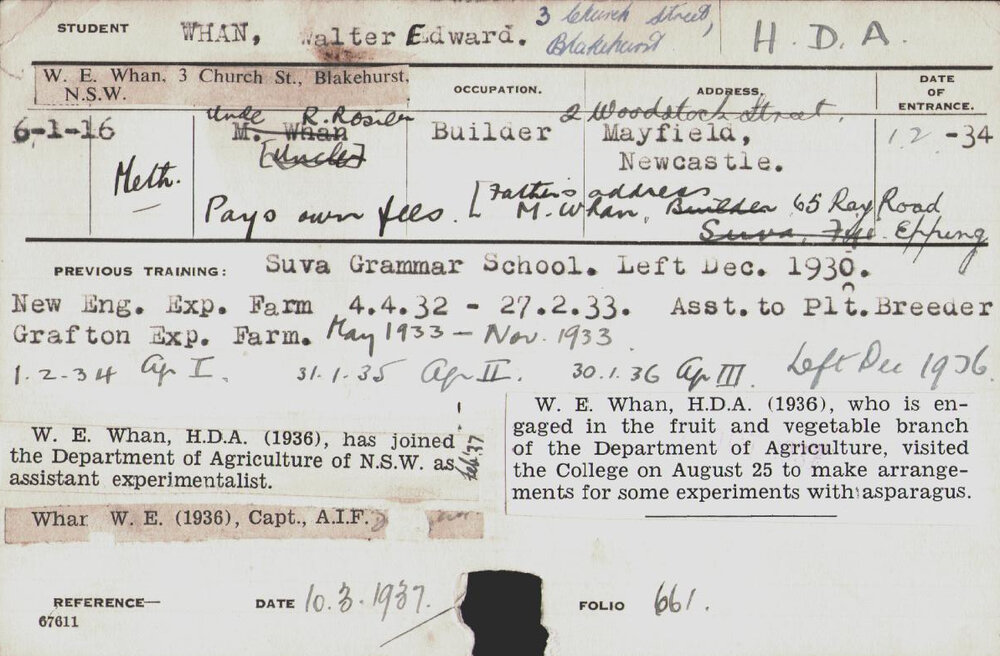 STUDENT WHAN, Walter Edward. 3 Church Street, H.D.A.
Blakehurst
W. E. Whan, 3 Church St., Blakehurst,
N.S.W.
OCCUPATION. ADDRESS. DATE OF ENTRANCE.
Uncle R. Rosier 2 Woodstock Street,
6-1-16 M. Whan Builder Mayfield, 1.2.-34
[Uncle] Newcastle.
Meth.
Pays own fees. [Father's address
M. Whan, Builder 65 Ray Road
Suva, Fiji. Epping
PREVIOUS TRAINING: Suva Grammar School. Left Dec. 1930.
New Eng. Exp. Farm 4.4.32 - 27.2.33. Asst. to Plt. Breeder
Grafton Exp. Farm. May 1933 - Nov. 1933
1.2.34 Ag I. 31.1.35 Ag II. 30.1.36 Ag III. Left Dec 1936.
W. E. Whan, H.D.A. (1936), has joined
the Department of Agriculture of N.S.W. as
assistant experimentalist.
Feb. 37
W. E. Whan, H.D.A. (1936), who is en-
gaged in the fruit and vegetable branch
of the Department of Agriculture, visited
the College on August 25 to make arrange-
ments for some experiments with asparagus.
Whan W. E. (1936), Capt., A.I.F.
REFERENCE— DATE 10.3.1937. FOLIO 661.
67611